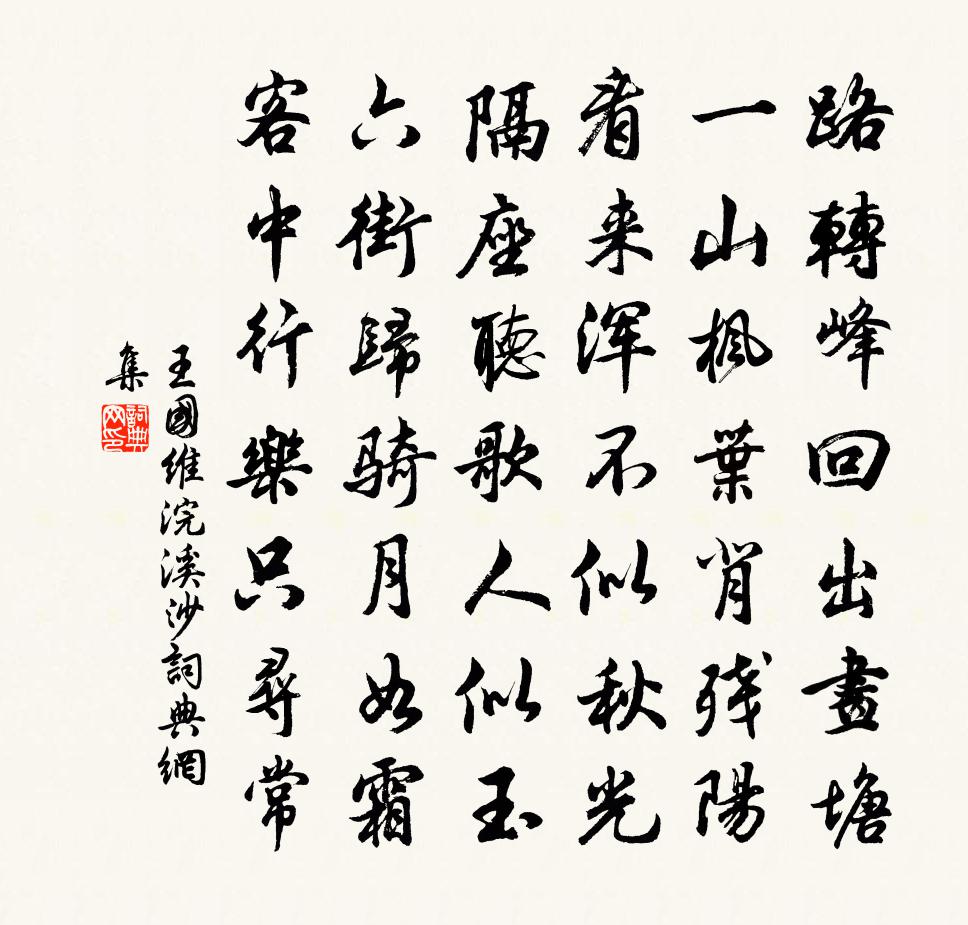 路轉峰回出畫塘
一山楓葉背残陽
看来浑不似秋光
隔座聽歌人似玉
六街歸骑月如霜
客中行樂只尋常
王國維浣溪沙詞典網
集
詞典
网印